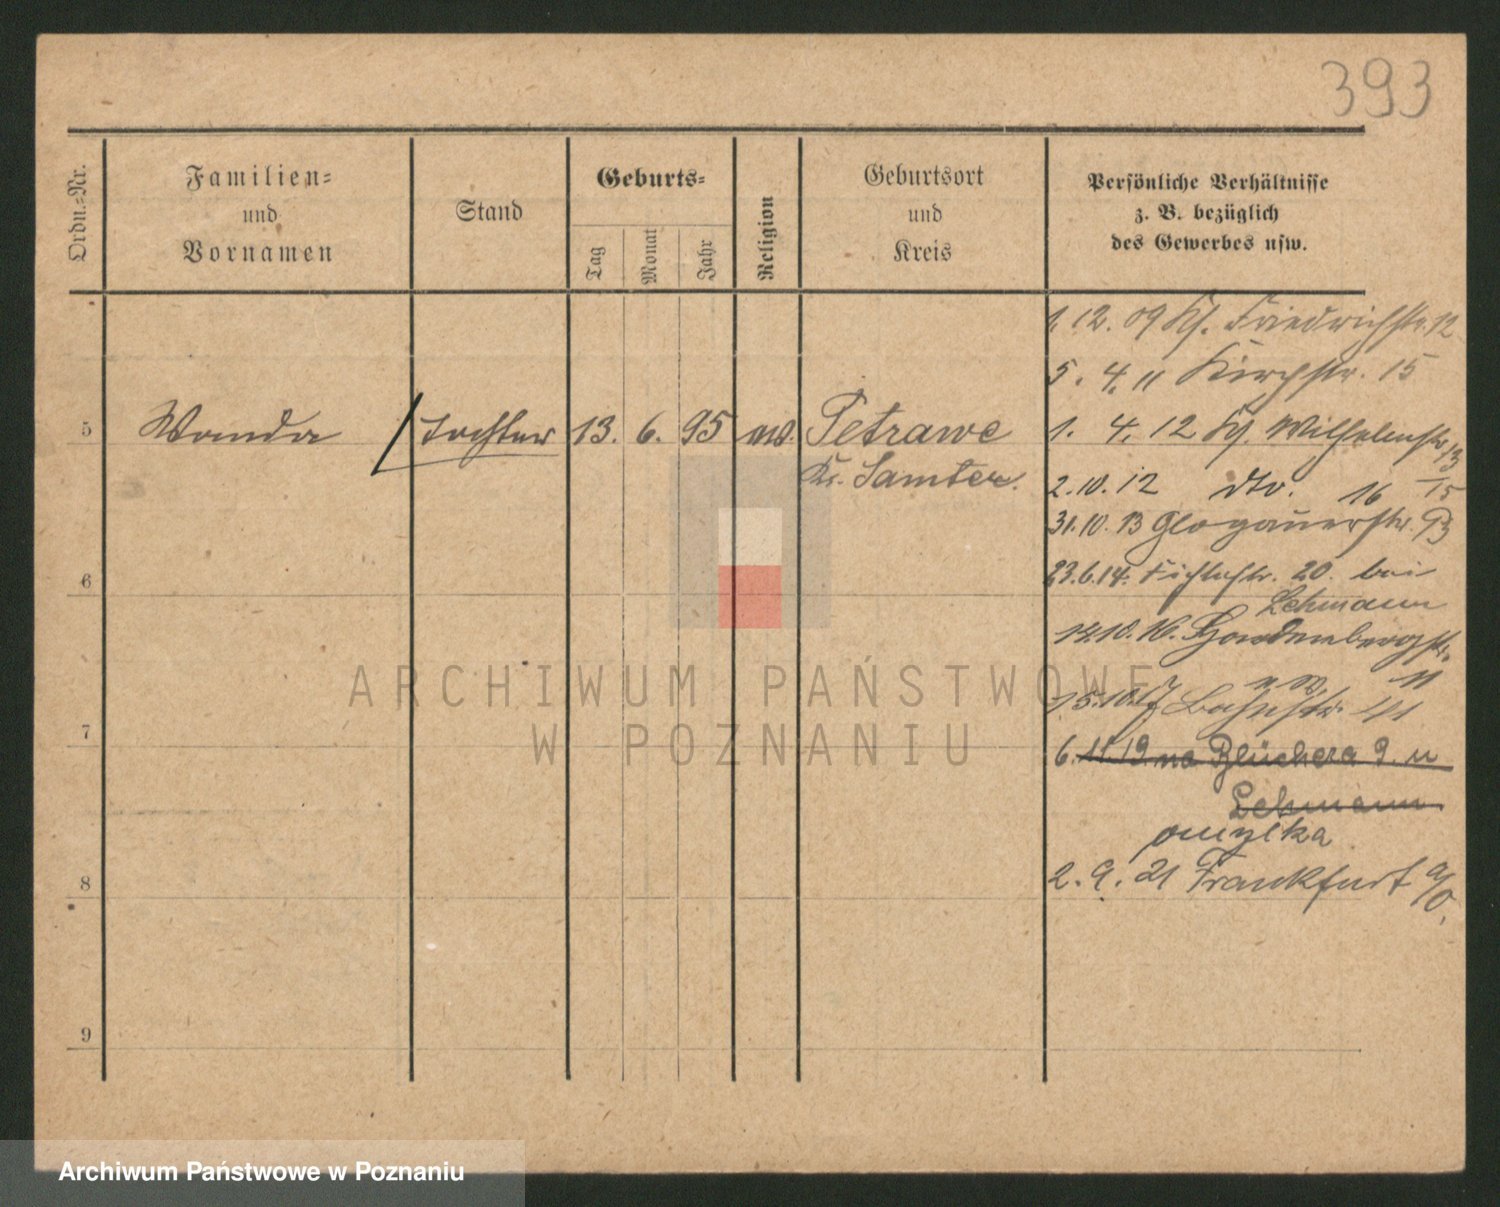 393
Ordn.-Nr.
Familien-
und
Vornamen
Stand
Geburts-
Tag
Monat
Jahr
Religion
Geburtsort
und
Kreis
Persönliche Verhältnisse
z. B. bezüglich
des Gewerbes usw.
1. 12. 09 Friedrichstr. 12
5. 4. 11 Kirchstr. 15
5 Wanda Tochter 13. 6. 95 Petrawe
Kr. Samter.
1. 4. 12 Wilhelmstr. 13
15
2. 10. 12 dto. 16
31. 10. 13 Glogauerstr. 93
6
23. 6. 14. Fichtestr. 20. bei
Lehmann
14. 10. 16. Hardenbergstr.
11
15. 10. 17 Bahnstr. 41
7
6. 11. 19. na Blüchera 9. u
Lehmann
omyłka
8
2. 9. 21 Frankfurt a/O.
9
ARCHIWUM PAŃSTWOWE
W POZNANIU
Archiwum Państwowe w Poznaniu